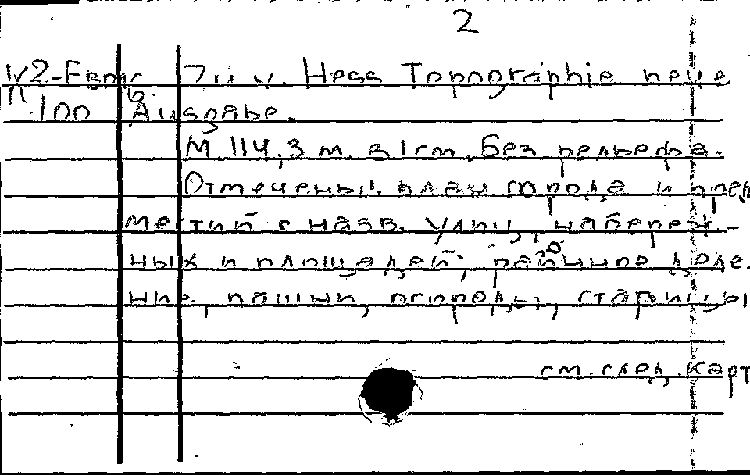 2
К2-Евр Zu v. Hess Topographie neue
100 Ausgabe.
М. 114,3 м. в 1 см. Без рельефа.
Отмечены: план города и пред
местий с назв. улиц, набереж-
ных и площадей; районное деле-
ние, пашни, огороды, старицы
см. след. карт